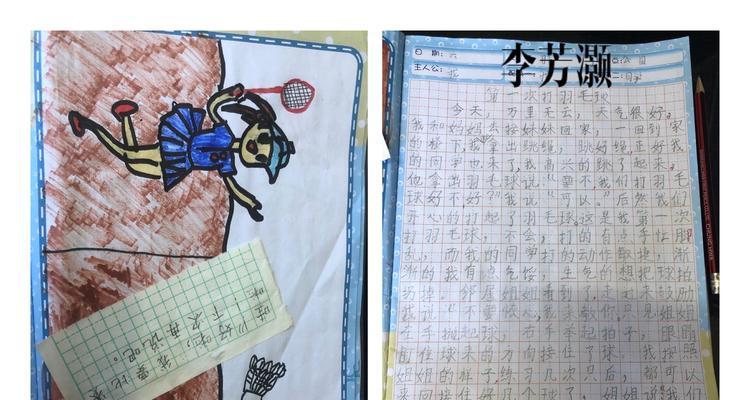 李芳灏
日期:六
主人公:我
第一次打羽毛球
今天,万里无云,天气很好。
我和妈妈去接妹妹回家,一回到家
的楼下,我拿出跳绳,跳好绳,正好我
的同学也来了,我高兴的跳了起来。
他拿出羽毛球说:“要不,我们打羽毛
球好不好?”我说:“可以。”后然我们
开心的打起了羽毛球。这是我第一次
打羽毛球,不会,打的有点手忙脚
乱,而我的同学打的动作敏捷,渐
渐的我有点气馁,生气的想把球拍
扔掉。邻居姐姐看到了,走过来鼓励
我说:“不要放心,我来教你,只见姐姐
左手抛起球,右手举起拍子,眼睛
盯住球来的方向接住了球。我按照
姐姐的样子,练习几次只后,都可以
来回接住好几个球了。姐姐说我们
哇!
好啦,我要比赛
下次再说吧。